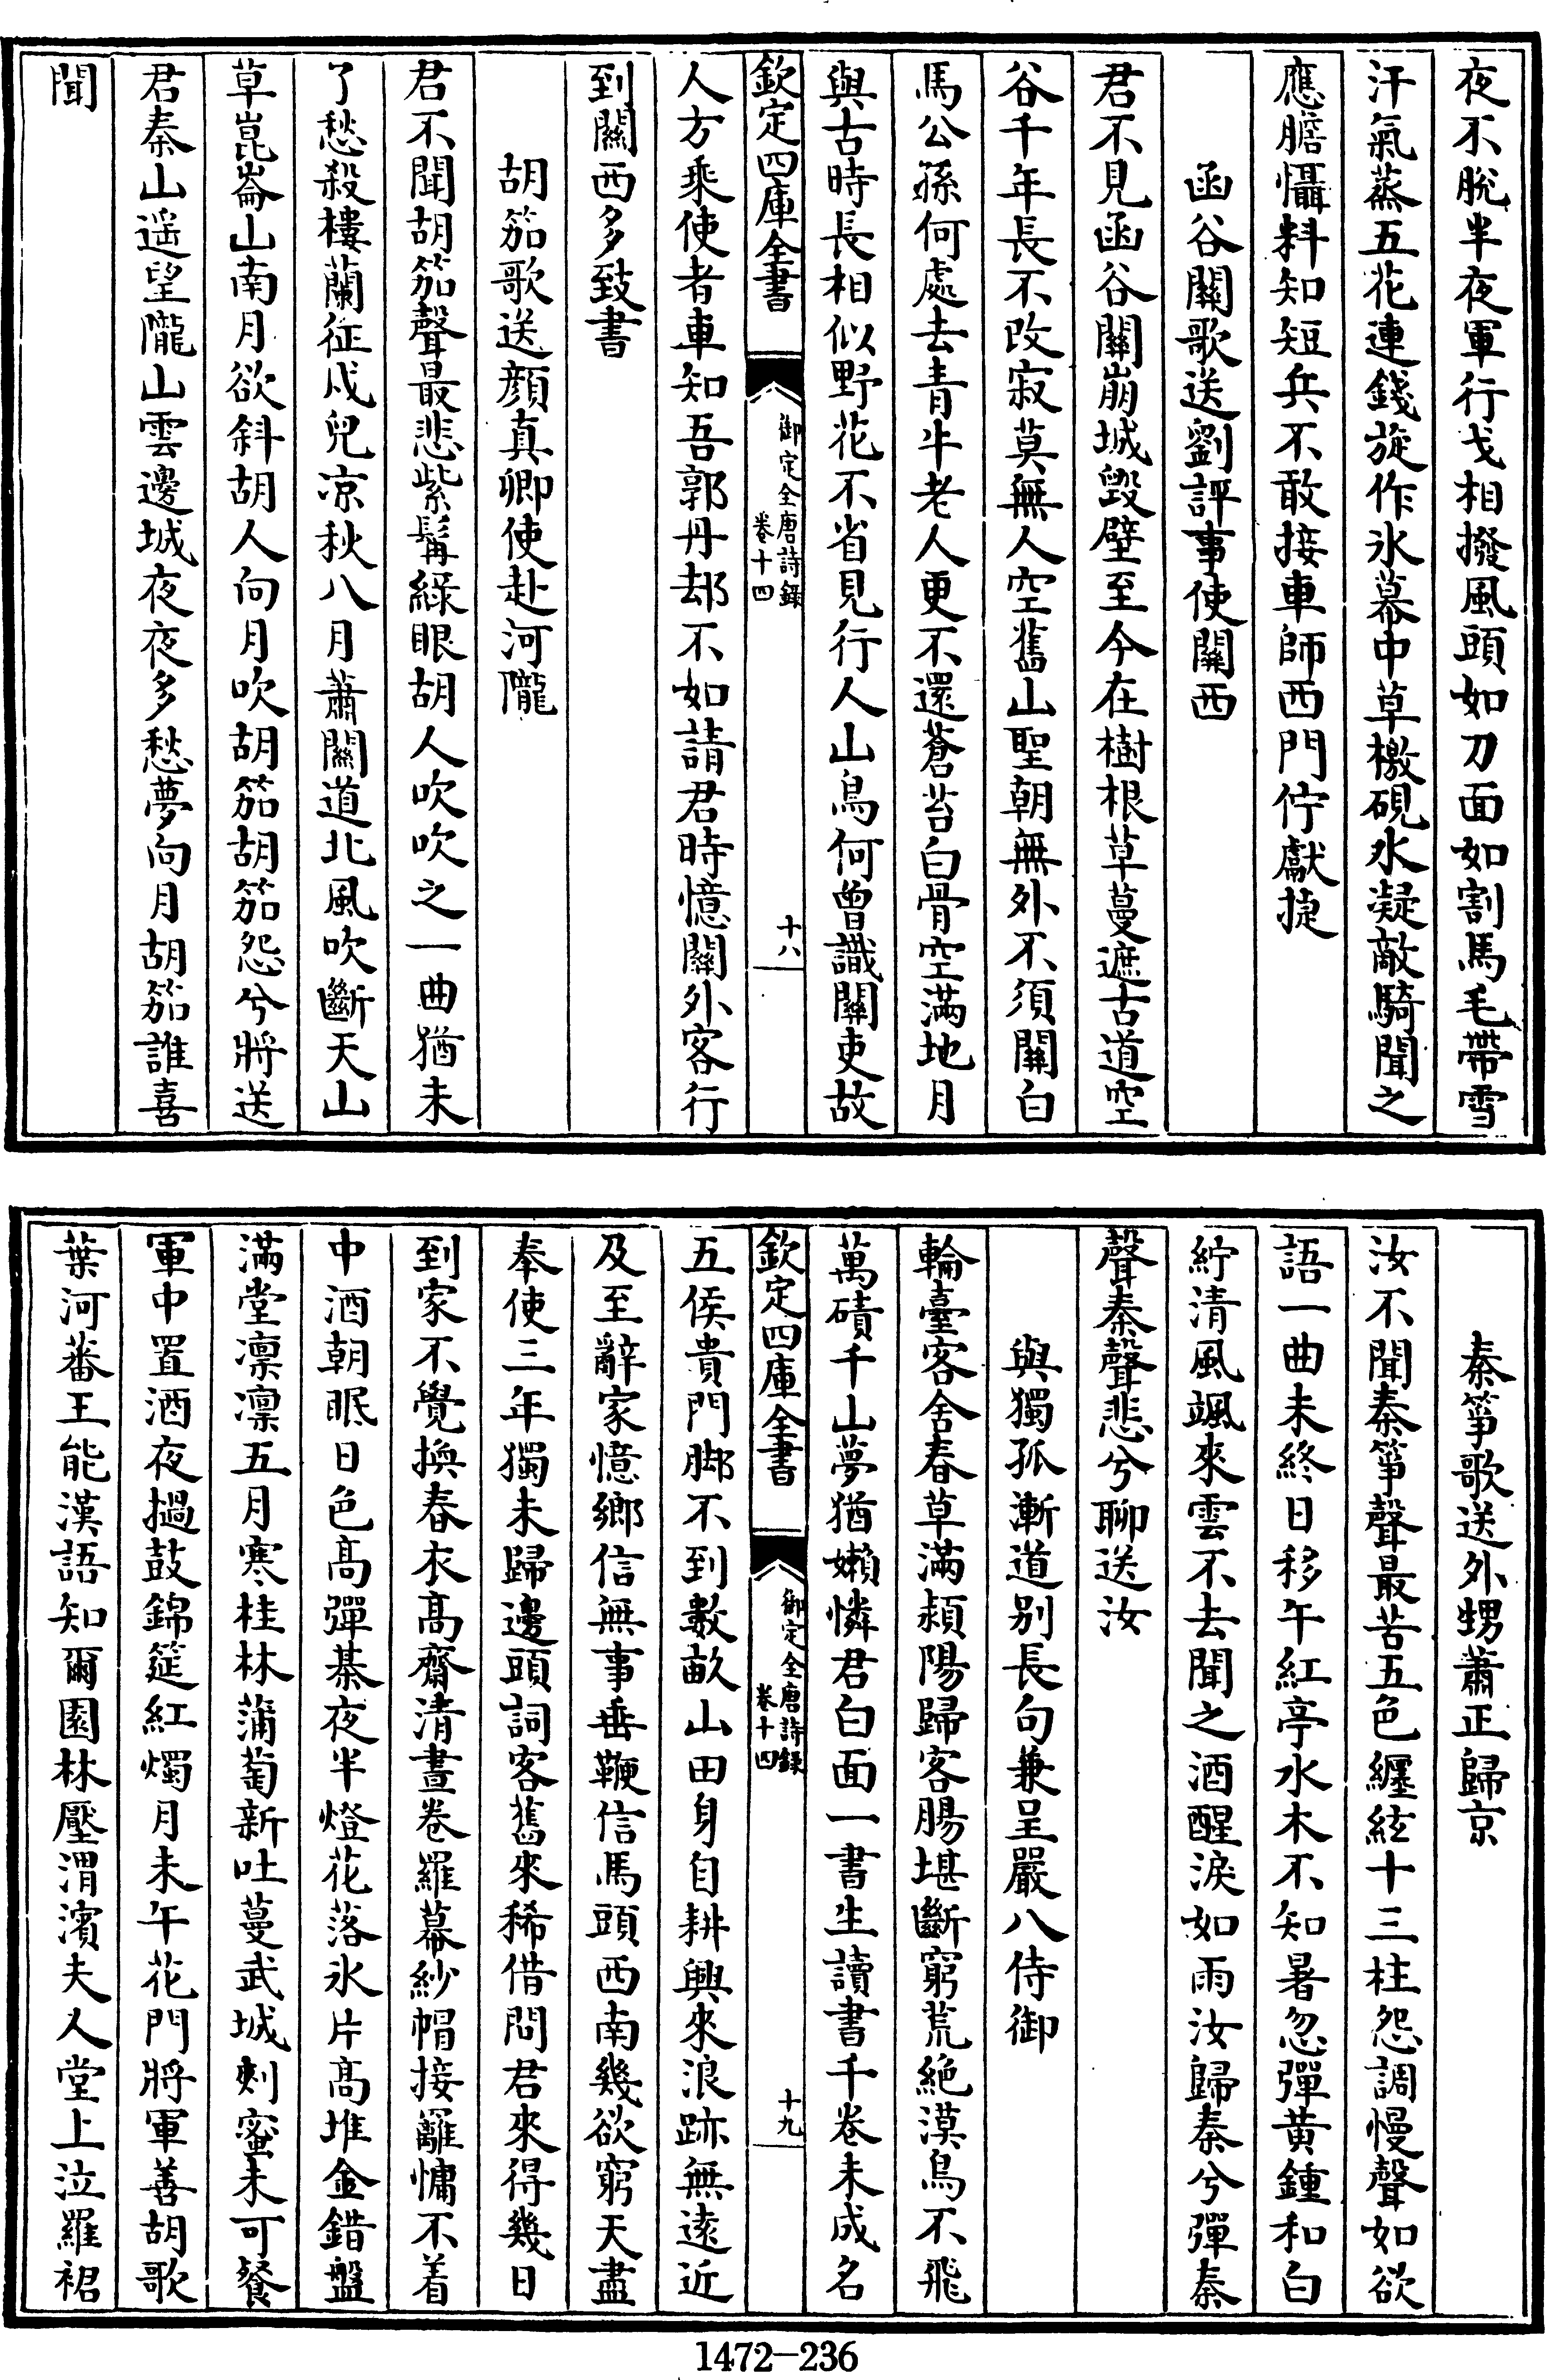 夜不脫半夜軍行戈相撥風頭如刀面如割馬毛帶雪
汗氣蒸五花連錢旋作氷幕中草檄硯水凝敵騎聞之
應膽懾料知短兵不敢接車師西門佇獻捷
函谷關歌送劉評事使關西
君不見函谷關崩城毀壁至今在樹根草蔓遮古道空
谷千年長不改寂莫無人空舊山聖朝無外不須關白
馬公孫何處去青牛老人更不還蒼苔白骨空滿地月
與古時長相似野花不省見行人山鳥何曾識關吏故
欽定四庫全書
御定全唐詩録
卷十四
十八
人方乘使者車知吾郭丹却不如請君時憶關外客行
到關西多致書
胡笳歌送顔真卿使赴河隴
君不聞胡笳聲最悲紫髯綠眼胡人吹吹之一曲猶未
了愁殺樓蘭征戍兒凉秋八月蕭關道北風吹斷天山
草崑崙山南月欲斜胡人向月吹胡笳胡笳怨兮將送
君秦山遥望隴山雲邊城夜夜多愁夢向月胡笳誰喜
聞
秦箏歌送外甥蕭正歸京
汝不聞秦箏聲最苦五色纒絃十三柱怨調慢聲如欲
語一曲未終日移午紅亭水木不知暑忽彈黄鍾和白
紵清風颯來雲不去聞之酒醒淚如雨汝歸秦兮彈秦
聲秦聲悲兮聊送汝
與獨孤漸道别長句兼呈嚴八侍御
輪臺客舍春草滿潁陽歸客腸堪斷窮荒絶漠鳥不飛
萬磧千山夢猶嬾憐君白面一書生讀書千卷未成名
欽定四庫全書
御定全唐詩録
卷十四
十九
五侯貴門脚不到數畝山田身自耕興來浪跡無逺近
及至辭家憶鄉信無事垂鞭信馬頭西南幾欲窮天盡
奉使三年獨未歸邊頭詞客舊來稀借問君來得幾日
到家不覺換春衣髙齋清晝卷羅幕紗帽接䍦慵不着
中酒朝眠日色髙彈棊夜半燈花落氷片髙堆金錯盤
滿堂凛凛五月寒桂林蒲萄新吐蔓武城刺蜜未可餐
軍中置酒夜撾鼓錦筵紅燭月未午花門將軍善胡歌
葉河蕃王能漢語知爾園林壓渭濱夫人堂上泣羅裙
1472-236